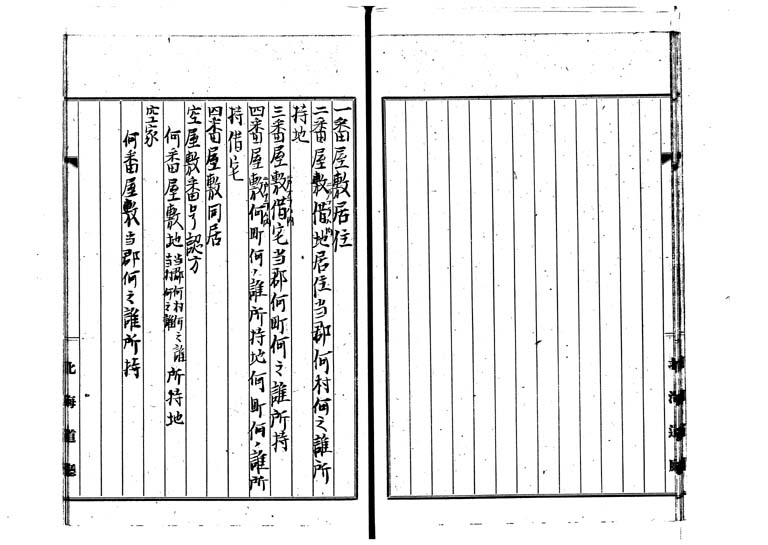 一番屋敷居住
二番屋敷借地居住当郡何村何之誰所
持地
三番屋敷借宅当郡何町何之誰所持
四番屋敷何町何々誰所持地何町何々誰所
持借宅
四番屋敷同居
空屋敷番号認方
何番屋敷地当郡何村何々誰所持地
当村何之誰
空家
何番屋敷当郡何之誰所持
北海道廳
北海道廳